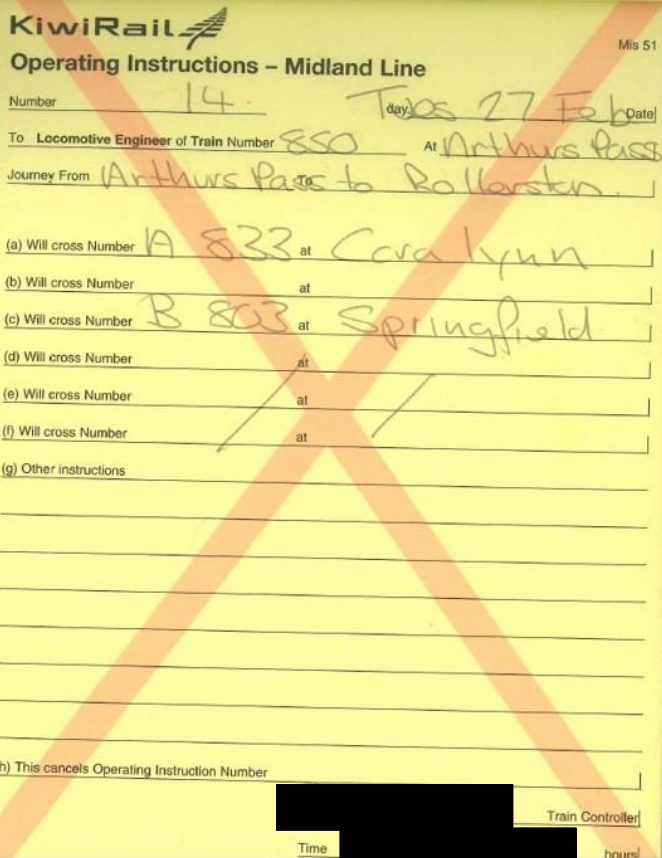 KiwiRail
Mis 51
Operating Instructions – Midland Line
Number 14 Tues day 27 Feb Date
To Locomotive Engineer of Train Number 850 At Arthurs Pass
Journey From Arthurs Pass To to Rolleston
(a) Will cross Number A 833 at Cora lynn
(b) Will cross Number at
(c) Will cross Number B 803 at Springfield
(d) Will cross Number at
(e) Will cross Number at
(f) Will cross Number at
(g) Other instructions
h) This cancels Operating Instruction Number
Train Controller
Time hours